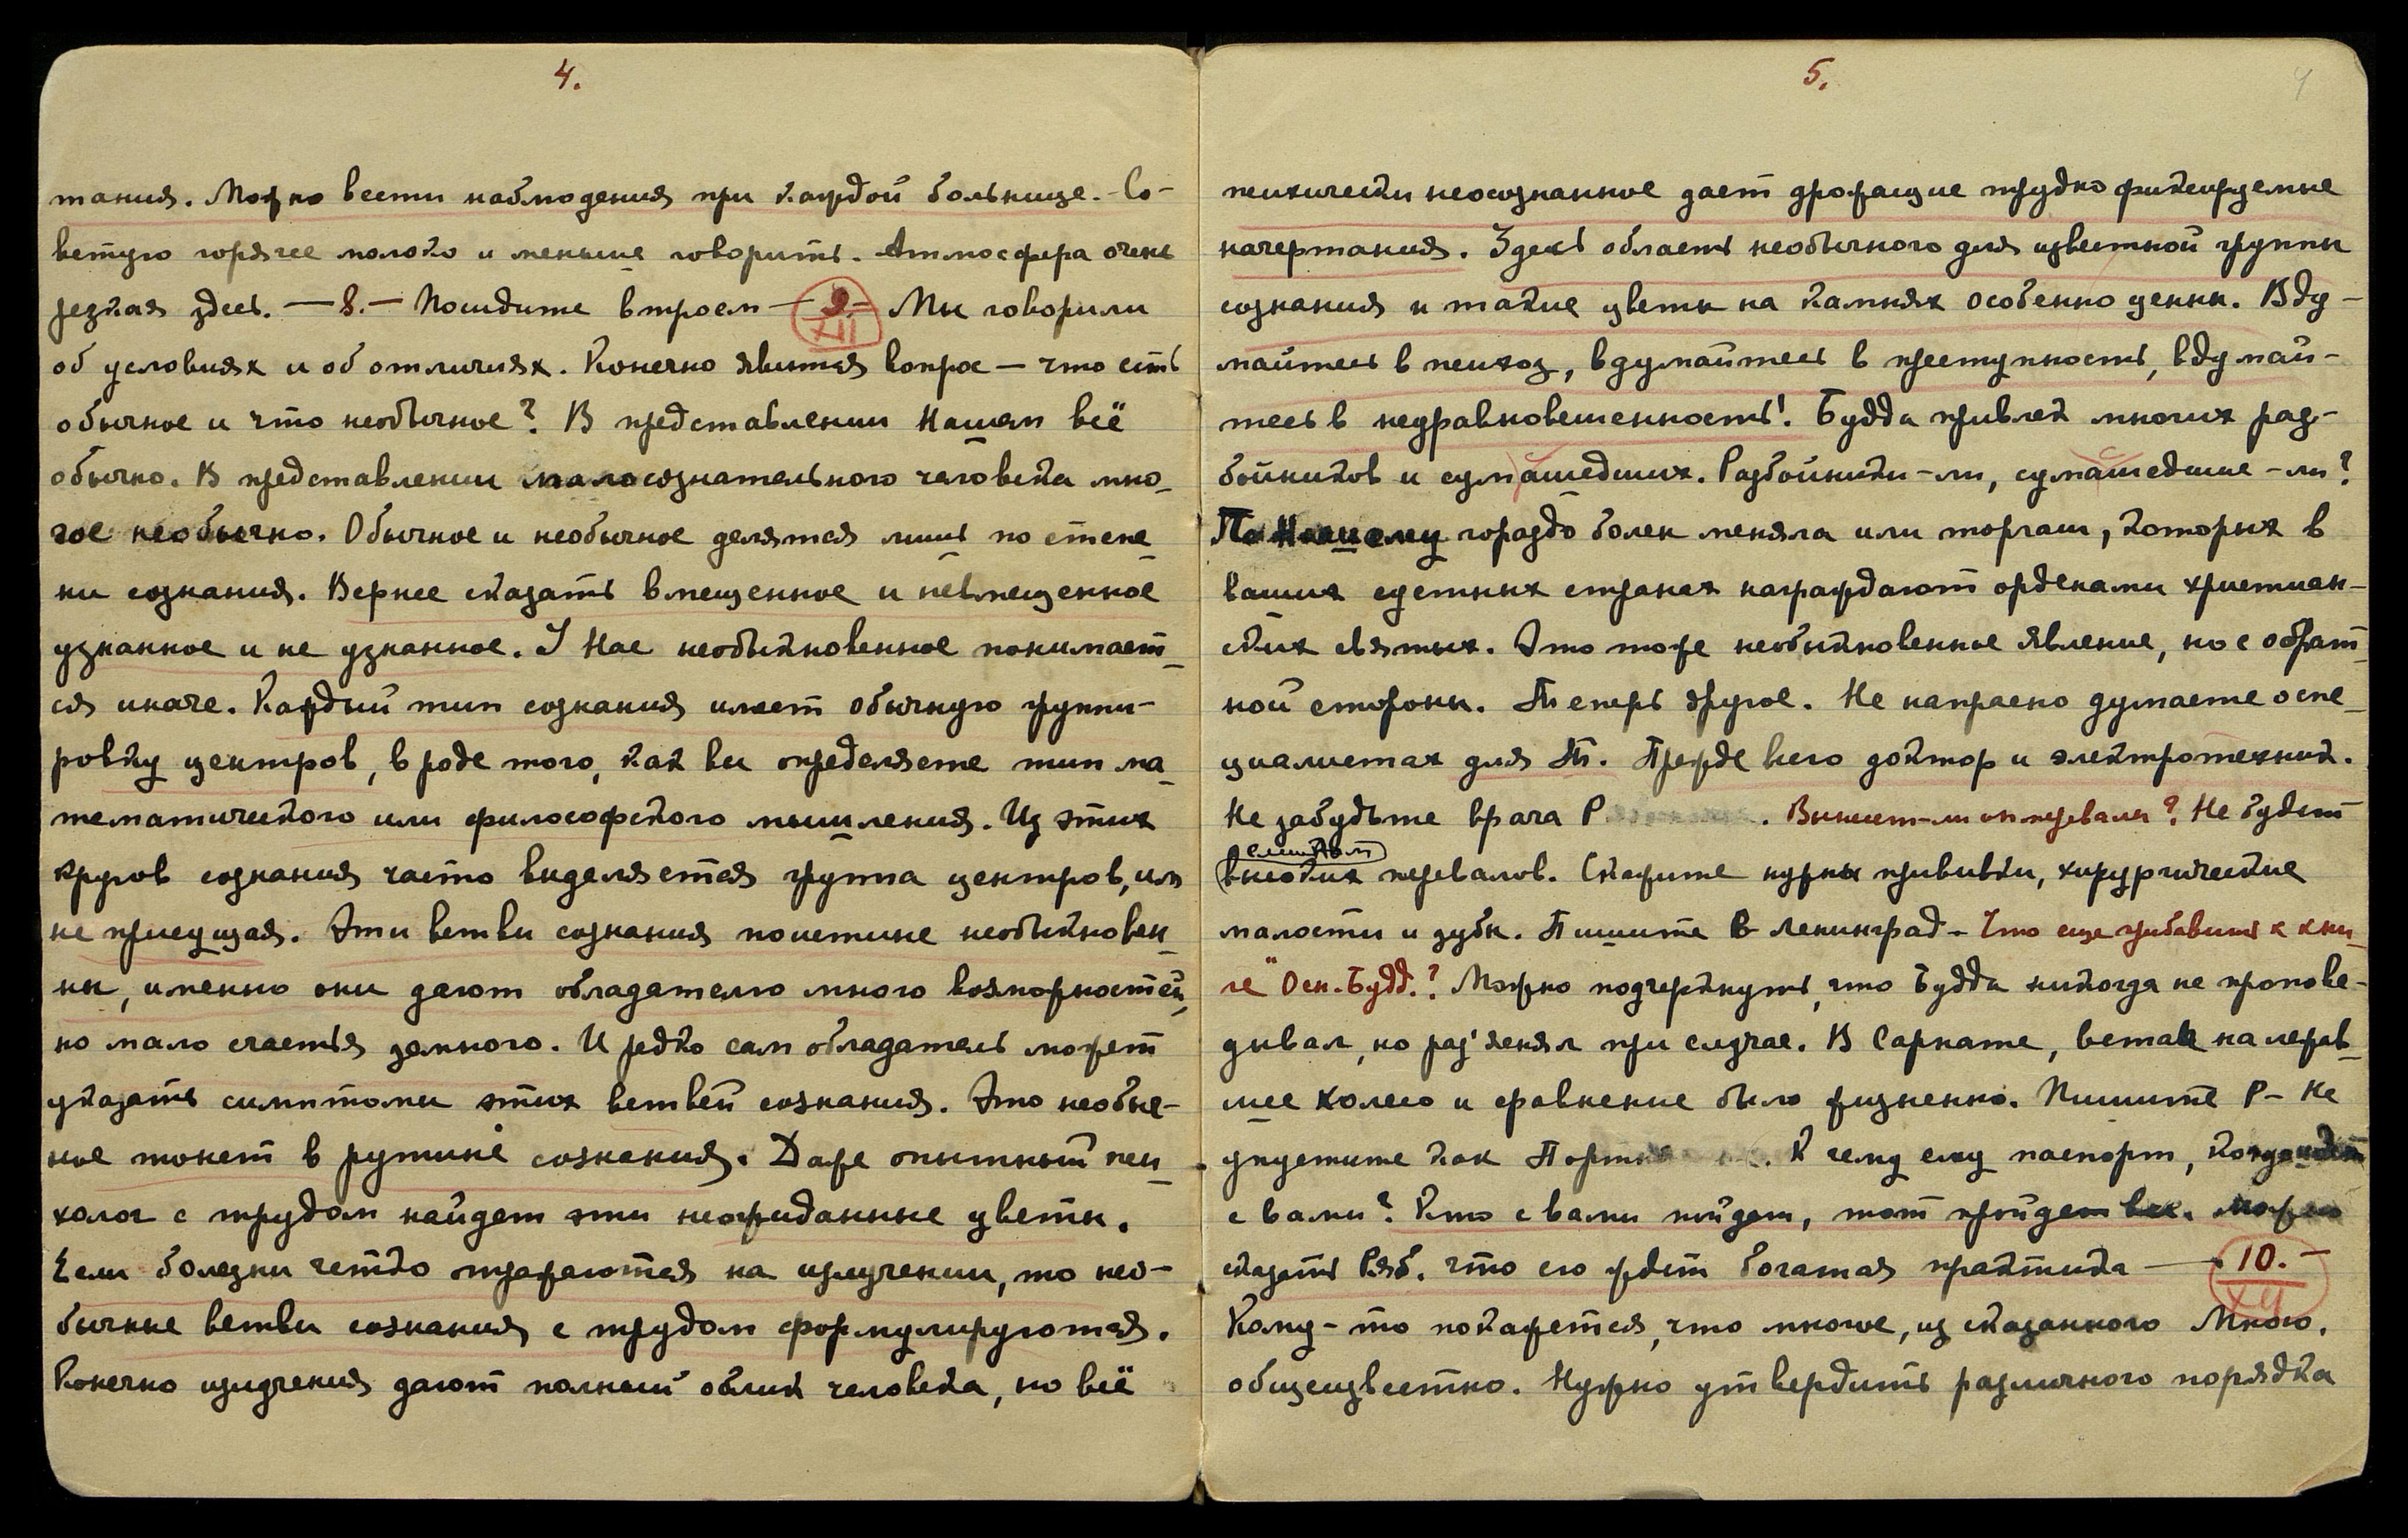 4.
тания. Можно вести наблюдения при каждой больнице. - Со-
ветую горячее молоко и меньше говорить. Атмосфера очень
резкая здесь. — 8. — Посидите втроем — 9. — Мы говорили
XII
об условиях и об отличиях. Конечно явится вопрос — что есть
обычное и что необычное? В представлении Нашем всё
обычно. В представлении малосознательного человека мно-
гое необычно. Обычное и необычное делятся лишь по степе-
ни сознания. Вернее сказать вмещенное и невмещенное
узнанное и не узнанное. У Нас необыкновенное понимает-
ся иначе. Каждый тип сознания имеет обычную группи-
ровку центров, в роде того, как вы определяете тип ма-
тематического или философского мышления. Из этих
кругов сознания часто выделяется группа центров, им
не присущая. Эти ветви сознания поистине необыкновен-
ны, именно они дают обладателю много возможностей,
но мало счастья земного. И редко сам обладатель может
указать симптомы этих ветвей сознания. Это необыч-
ное тонет в рутине сознания. Даже опытный пси-
холог с трудом найдет эти неожиданные цветы.
Если болезни четко отражаются на излучении, то нео-
бычные ветви сознания с трудом формулируются.
Конечно излучения дают полный облик человека, но всё
5.
психически неосознанное дает дрожащие трудно фиксируемые
начертания. Здесь область необычного для известной группы
сознания и такие цветы на камнях особенно ценны. Вду-
майтесь в психоз, вдумайтесь в преступность, вдумай-
тесь в неуравновешенность! Будда привлек многих раз-
бойников и сумашедших. Разбойники-ли, сумашедшие-ли?
По Нашему гораздо более меняла или торгаш, которых в
ваших суетных странах награждают орденами христиан-
ских святых. Это тоже необыкновенное явление, но с обрат-
ной стороны. Теперь другое. Не напрасно думаете о спе-
циалистах для Т. Прежде всего доктор и электротехник.
Не забудьте врача Р. Вынесет-ли он перевалы? Не будет
слишком
высоких перевалов. Скажите нужны прививки, хирургические
малости и зубы. Пишите в Ленинград - Что еще прибавить к кни-
ге "Осн. Будд."? Можно подчеркнуть, что Будда никогда не пропове-
дывал, но раз'яснял при случае. В Сарнате, встав на лежав-
шее колесо и сравнение было жизненно. Пишите Р - Не
упустите как Портн. К чему ему паспорт, когда идет
с вами? Кто с вами пойдет, тот пройдет все. Можно
сказать Ряб. что его ждет богатая практика — 10. —
XII
Кому-то покажется, что многое, из сказанного Мною,
общеизвестно. Нужно утвердить различного порядка